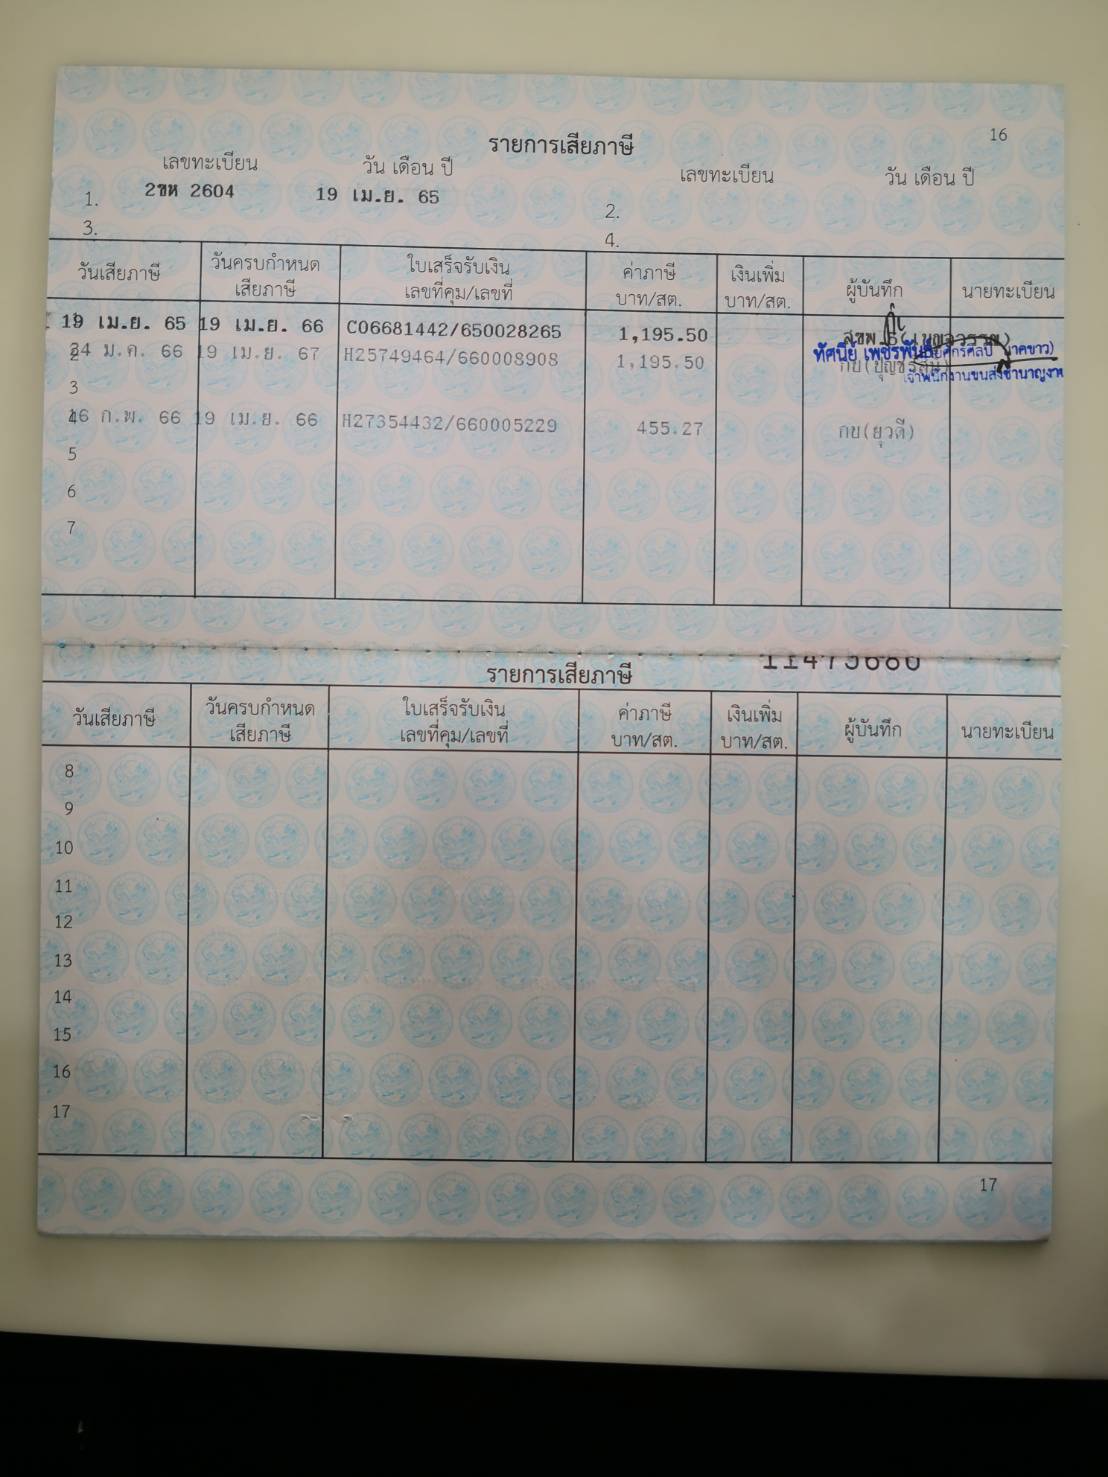 16
รายการเสียภาษี
เลขทะเบียน วัน เดือน ปี เลขทะเบียน วัน เดือน ปี
1. 2ขห 2604 19 เม.ย. 65 2.
3. 4.
วันเสียภาษี วันครบกำหนด ใบเสร็จรับเงิน ค่าภาษี เงินเพิ่ม ผู้บันทึก นายทะเบียน
เสียภาษี เลขที่คุม/เลขที่ บาท/สต. บาท/สต.
19 เม.ย. 65 19 เม.ย. 66 C06681442/650028265 1,195.50
24 ม.ค. 66 19 เม.ย. 67 H25749464/660008908 1,195.50 ทัศนีย์
3
4 16 ก.พ. 66 19 เม.ย. 66 H27354432/660005229 455.27 กข(ยุวดี)
5
6
7
11475680
รายการเสียภาษี
วันเสียภาษี วันครบกำหนด ใบเสร็จรับเงิน ค่าภาษี เงินเพิ่ม ผู้บันทึก นายทะเบียน
เสียภาษี เลขที่คุม/เลขที่ บาท/สต. บาท/สต.
8
9
10
11
12
13
14
15
16
17
17